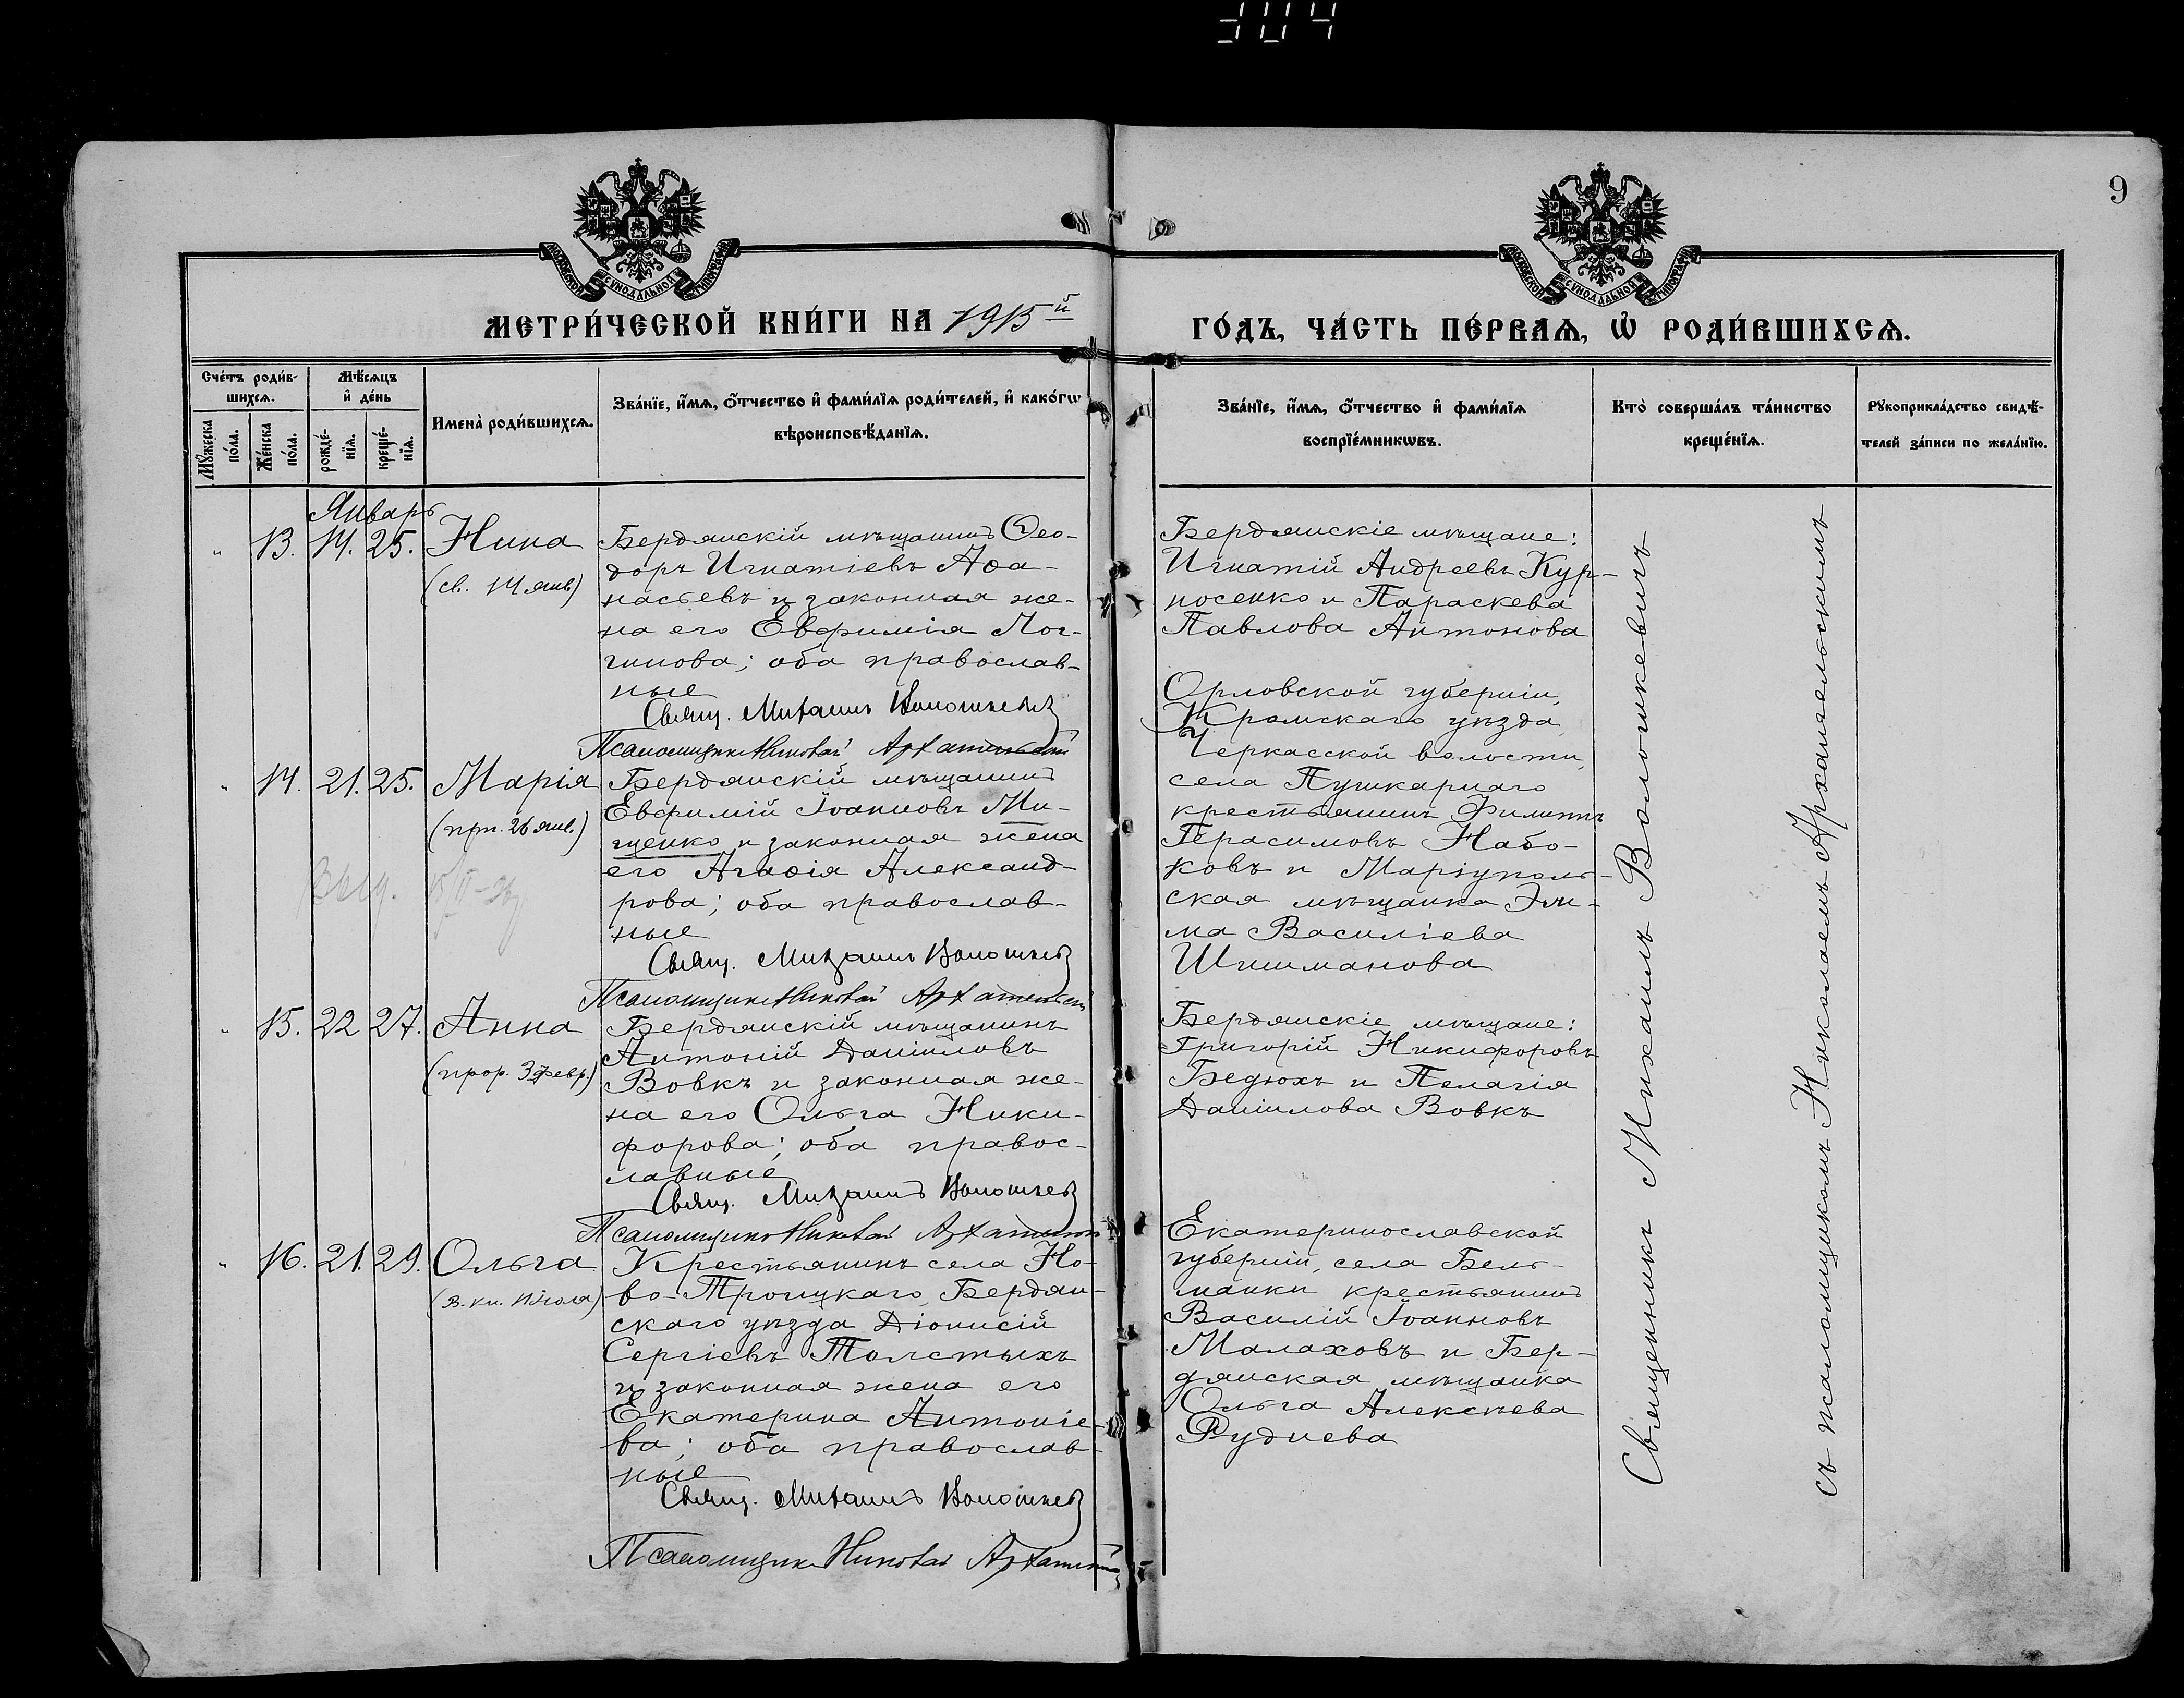 304
9
МОСКОВСКОЙ СѴНОДАЛЬНОЙ ТИПОГРАФІИ
МОСКОВСКОЙ СѴНОДАЛЬНОЙ ТИПОГРАФІИ
МЕТРИ́ЧЕСКОЙ КНИ́ГИ НА 1915й
ГО́ДЪ, ЧА́СТЬ ПЕ́РВАѦ, Ѡ҆ РОДИ́ВШИХСѦ.
Сче́тъ роди́в-
шихсѧ.
Мꙋ́жеска
по́ла.
Же́нска
по́ла.
Мѣ́сѧцъ
и҆ де́нь
рожде́-
нїѧ.
креще́-
нїѧ.
Имена̀ роди́вшихсѧ.
Зва́нїе, и҆́мѧ, ѻ҆́тчество и҆ фами́лїѧ роди́телей, и҆ како́гѡ
вѣроисповѣ́данїѧ.
Зва́нїе, и҆́мѧ, ѻ҆́тчество и҆ фами́лїѧ
воспрїе́мникѡвъ.
Кто̀ соверша́лъ та́инство
креще́нїѧ.
Рꙋкоприкла́дство свидѣ́-
телей за́писи по жела́нїю.
Январь
" 13. 14. 25. Нина
(св. 14 янв)
Бердянскій мѣщанинъ Ѳео-
доръ Игнатіевъ Аѳа-
насьевъ и законная же-
на его Евфимія Лог-
гинова; оба православ-
ные
Свящ. Михаилъ Волошкевич
Псаломщикъ Николай Архангельскій
Бердянскіе мѣщане:
Игнатій Андреевъ Кур-
носенко и Параскева
Павлова Антонова
" 14. 21. 25. Марія
(прп. 26 янв.)
Бердянскій мѣщанинъ
Евфимій Іоанновъ Ми-
щенко и законная жена
его Агаѳія Александ-
рова; оба православ-
ные
Свящ. Михаилъ Волошкевич
Псаломщикъ Николай Архангельскій
Орловской губерніи,
Кромскаго уѣзда,
Черкасской волости,
села Пушкарнаго
крестьянинъ Филиппъ
Герасимовъ Набо-
ковъ и Маріуполь-
ская мѣщанка Эм-
ма Василіева
Шишманова
Выд.
" 15. 22 27. Анна
(прор. 3 февр.)
Бердянскій мѣщанинъ
Антоній Даніиловъ
Вовкъ и законная же-
на его Ольга Ники-
форова; оба правос-
лавные
Свящ. Михаилъ Волошкевич
Псаломщикъ Николай Архангельскій
Бердянскіе мѣщане:
Григорій Никифоровъ
Бедюхъ и Пелагія
Даніилова Вовкъ
" 16. 21. 29. Ольга
(в. кн. 11 іюля)
Крестьянинъ села Но-
во-Троицкаго, Бердян-
скаго уѣзда Діонисій
Сергіевъ Толстыхъ
и законная жена его
Екатерина Антоніе-
ва; оба православ-
ные
Свящ. Михаилъ Волошкевич
Псаломщикъ Николай Архангельскій
Екатеринославской
губерніи, села Бель-
манки крестьянинъ
Василій Іоанновъ
Малаховъ и Бер-
дянская мѣщанка
Ольга Алексѣева
Руднева
Священникъ Михаилъ Волошкевичъ
съ псаломщикомъ Николаемъ Архангельскимъ